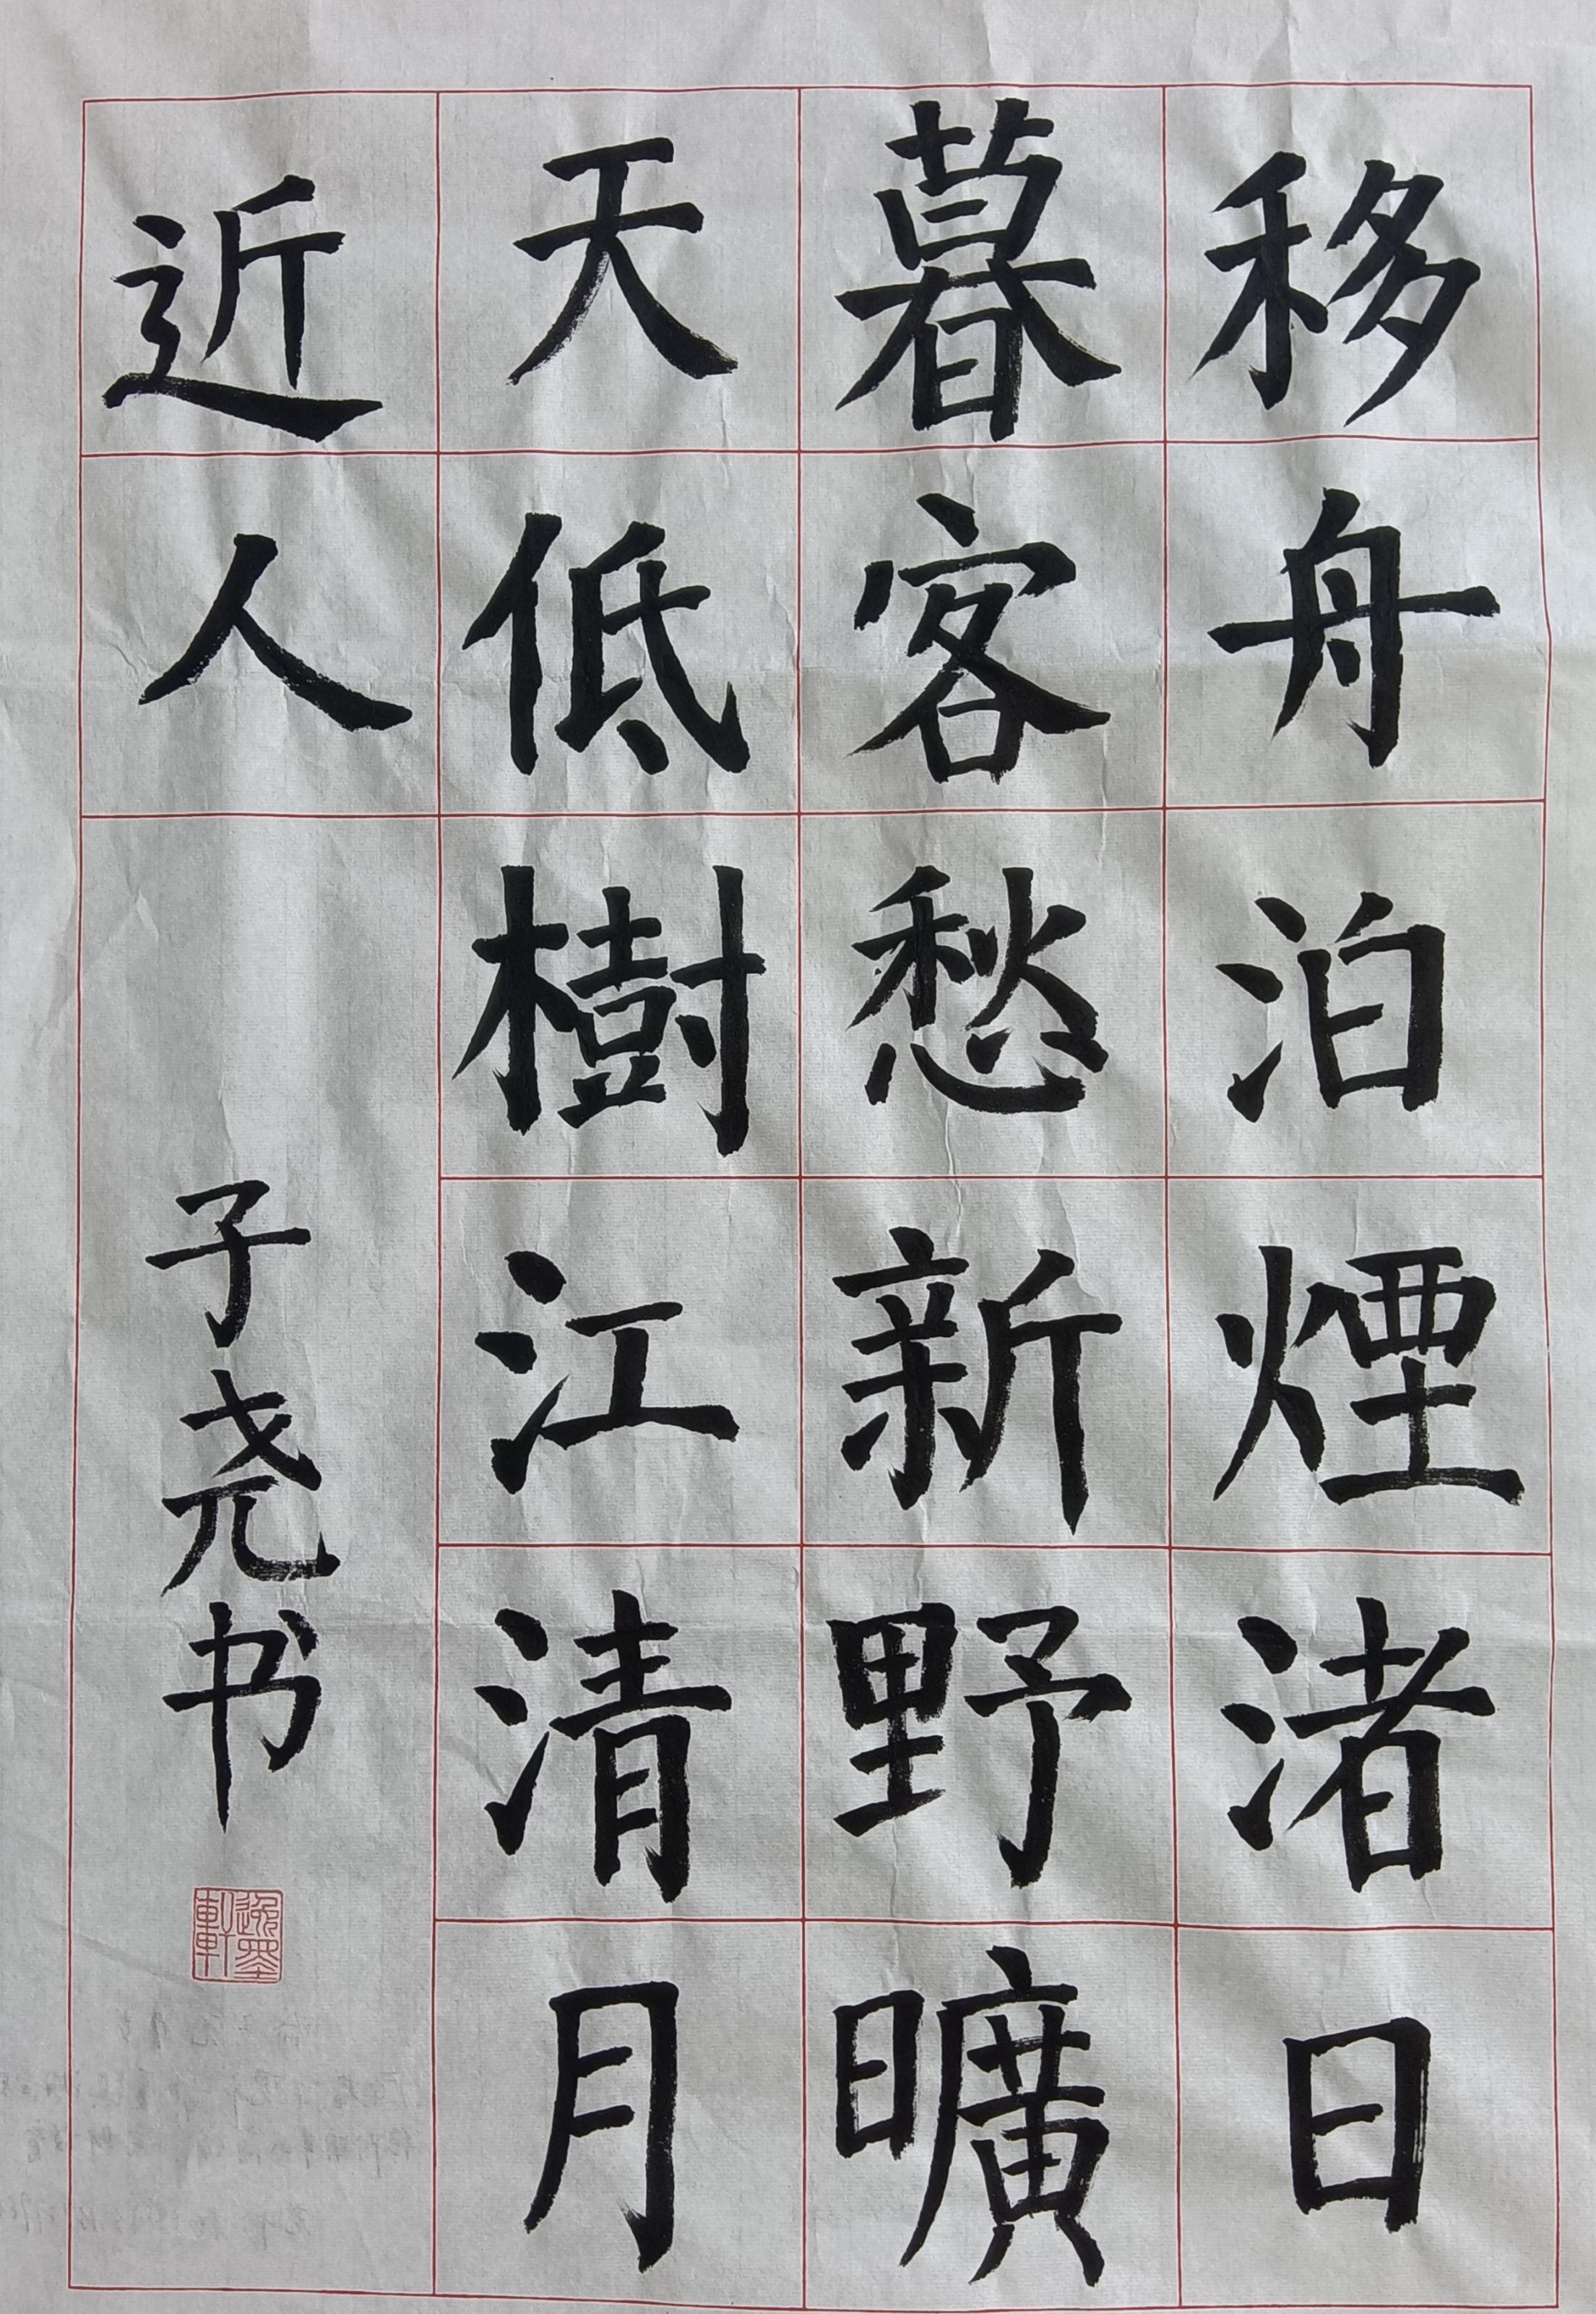 移舟泊煙渚日
暮客愁新野曠
天低樹江清月
近人
子尧书